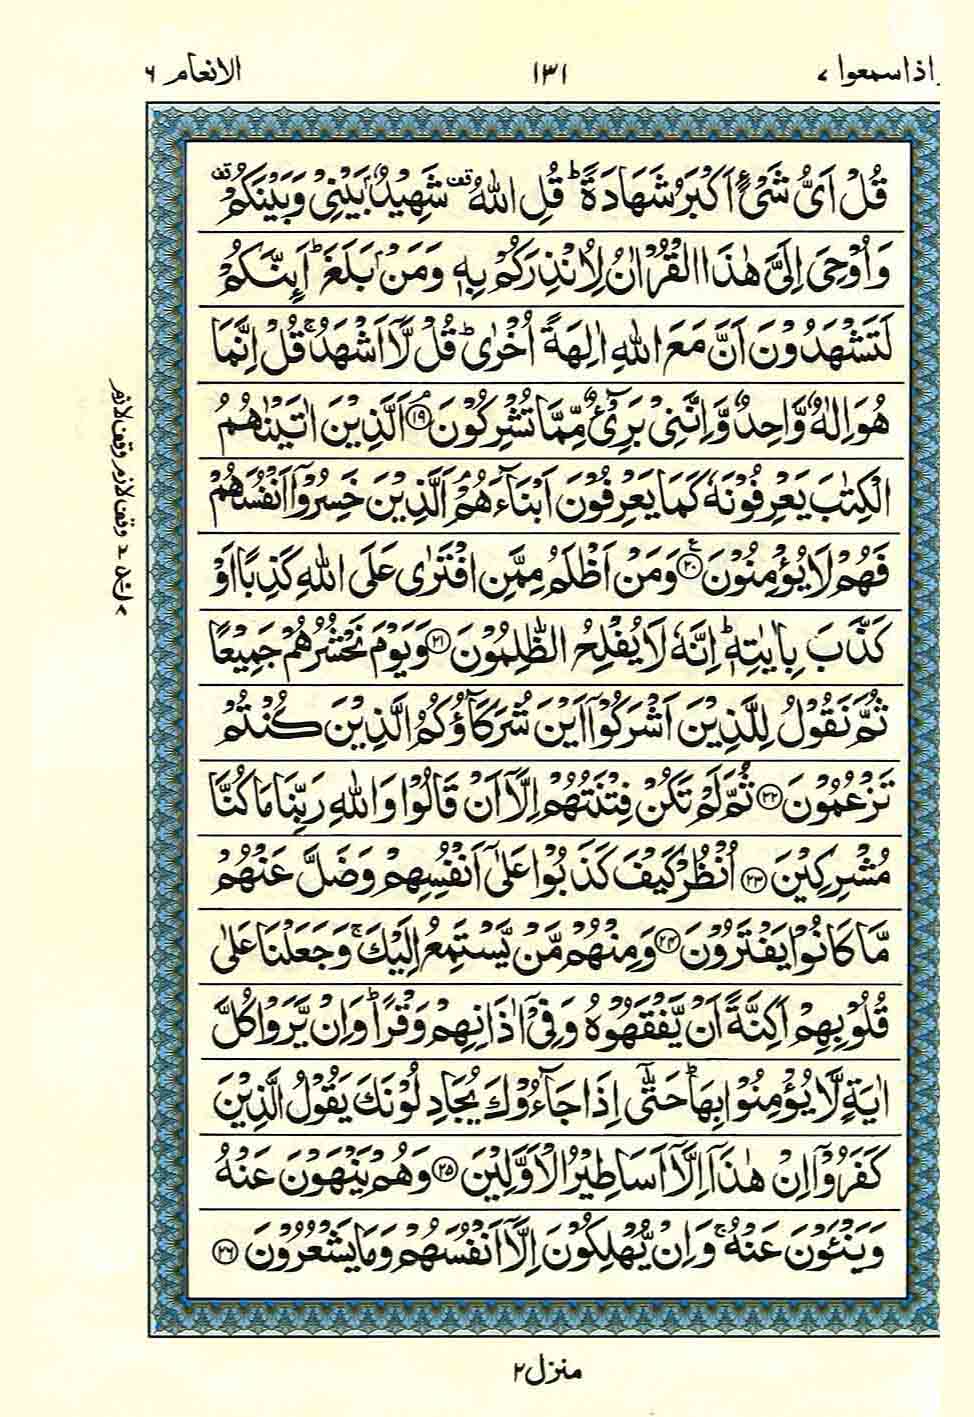 واذا سمعوا ٧
١٣١
الانعام ٦
قُلْ اَیُّ شَیْءٍ اَكْبَرُ شَهَادَةً ؕ قُلِ اللّٰهُ ۙ۫ شَهِیْدٌۢ بَیْنِیْ وَ بَیْنَكُمْ ۫
وَ اُوْحِیَ اِلَیَّ هٰذَا الْقُرْاٰنُ لِاُنْذِرَكُمْ بِهٖ وَ مَنْۢ بَلَغَ ؕ اَىِٕنَّكُمْ
لَتَشْهَدُوْنَ اَنَّ مَعَ اللّٰهِ اٰلِهَةً اُخْرٰی ؕ قُلْ لَّاۤ اَشْهَدُ ۚ قُلْ اِنَّمَا
هُوَ اِلٰهٌ وَّاحِدٌ وَّ اِنَّنِیْ بَرِیْٓءٌ مِّمَّا تُشْرِكُوْنَ ﴿۱۹﴾ اَلَّذِیْنَ اٰتَیْنٰهُمُ
الْكِتٰبَ یَعْرِفُوْنَهٗ كَمَا یَعْرِفُوْنَ اَبْنَآءَهُمْ ۘ اَلَّذِیْنَ خَسِرُوْۤا اَنْفُسَهُمْ
فَهُمْ لَا یُؤْمِنُوْنَ ﴿۲۰﴾ ۧ وَ مَنْ اَظْلَمُ مِمَّنِ افْتَرٰی عَلَی اللّٰهِ كَذِبًا اَوْ
كَذَّبَ بِاٰیٰتِهٖ ؕ اِنَّهٗ لَا یُفْلِحُ الظّٰلِمُوْنَ ﴿۲۱﴾ وَ یَوْمَ نَحْشُرُهُمْ جَمِیْعًا
ثُمَّ نَقُوْلُ لِلَّذِیْنَ اَشْرَكُوْۤا اَیْنَ شُرَكَآؤُكُمُ الَّذِیْنَ كُنْتُمْ
تَزْعُمُوْنَ ﴿۲۲﴾ ثُمَّ لَمْ تَكُنْ فِتْنَتُهُمْ اِلَّاۤ اَنْ قَالُوْا وَ اللّٰهِ رَبِّنَا مَا كُنَّا
مُشْرِكِیْنَ ﴿۲۳﴾ اُنْظُرْ كَیْفَ كَذَبُوْا عَلٰۤی اَنْفُسِهِمْ وَ ضَلَّ عَنْهُمْ
مَّا كَانُوْا یَفْتَرُوْنَ ﴿۲۴﴾ وَ مِنْهُمْ مَّنْ یَّسْتَمِعُ اِلَیْكَ ۚ وَ جَعَلْنَا عَلٰی
قُلُوْبِهِمْ اَكِنَّةً اَنْ یَّفْقَهُوْهُ وَ فِیْۤ اٰذَانِهِمْ وَقْرًا ؕ وَ اِنْ یَّرَوْا كُلَّ
اٰیَةٍ لَّا یُؤْمِنُوْا بِهَا ؕ حَتّٰۤی اِذَا جَآءُوْكَ یُجَادِلُوْنَكَ یَقُوْلُ الَّذِیْنَ
كَفَرُوْۤا اِنْ هٰذَاۤ اِلَّاۤ اَسَاطِیْرُ الْاَوَّلِیْنَ ﴿۲۵﴾ وَ هُمْ یَنْهَوْنَ عَنْهُ
وَ یَنْـَٔوْنَ عَنْهُ ۚ وَ اِنْ یُّهْلِكُوْنَ اِلَّاۤ اَنْفُسَهُمْ وَ مَا یَشْعُرُوْنَ ﴿۲۶﴾
منزل ٢